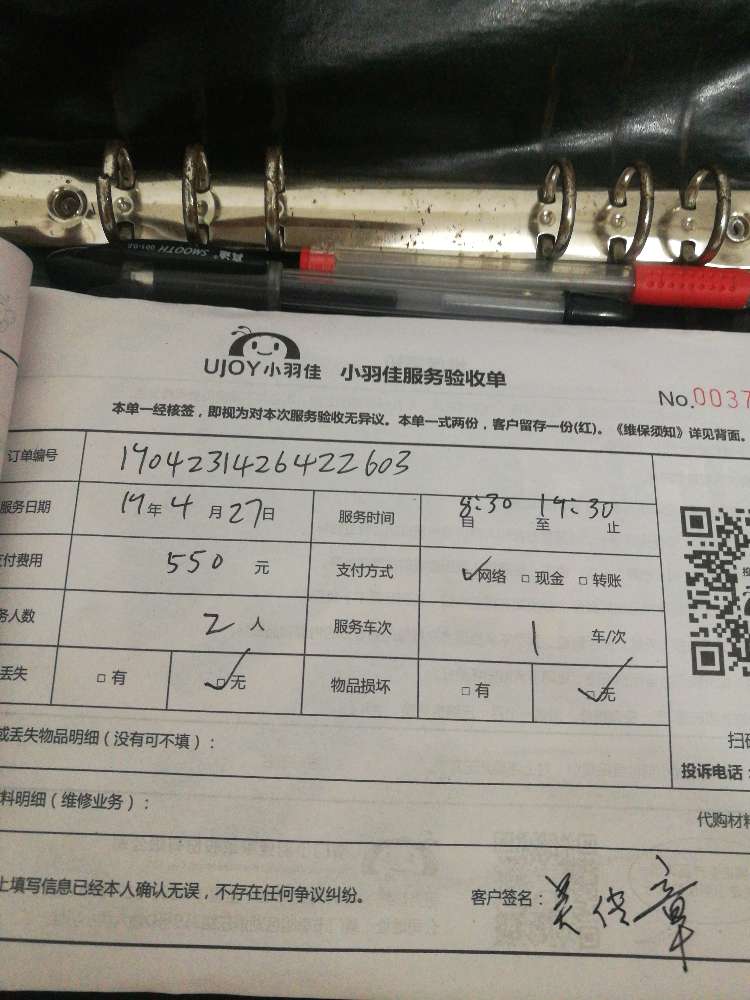 真适® SMOOTH 001-02
UJOY小羽佳 小羽佳服务验收单
No.0037
本单一经核签，即视为对本次服务验收无异议。本单一式两份，客户留存一份(红)。《维保须知》详见背面。
订单编号 1904231426422603
服务日期 19年4月27日 服务时间 8:30自 至19:30止
付费用 550元 支付方式 ☑网络 □现金 □转账
务人数 2人 服务车次 1 车/次
丢失 □有 ☑无 物品损坏 □有 ☑无
或丢失物品明细（没有可不填）：
扫码
投诉电话：
料明细（维修业务）：
代购材料
上填写信息已经本人确认无误，不存在任何争议纠纷。 客户签名：